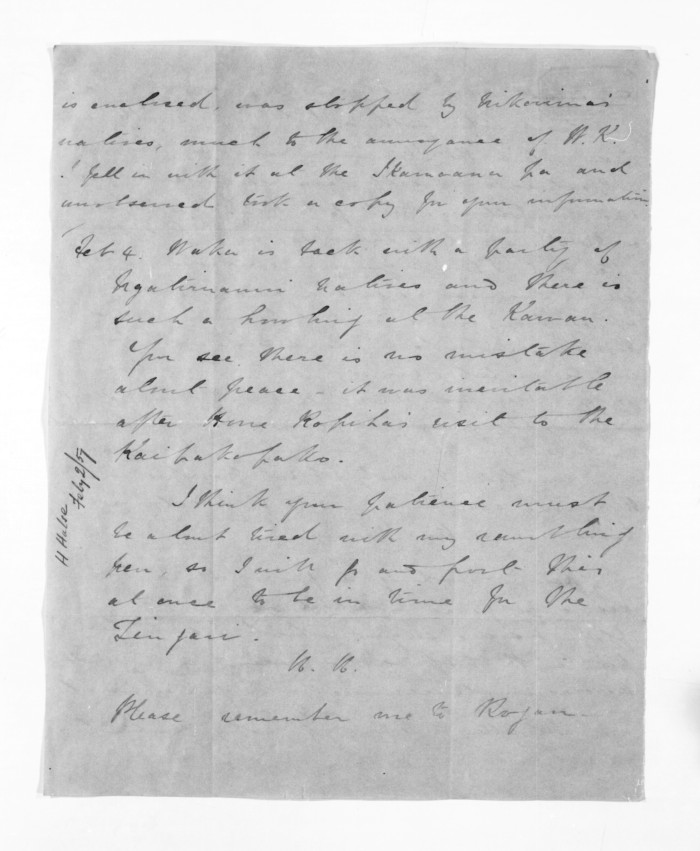 is enclosed, was stopped by Nikorima's
natives, much to the annoyance of W. K.
I fell in with it at the Ikamoana pa and
unobserved took a copy for your information.
Feb 4. Waka is back with a party of
Ngatiruanui natives and there is
such a howling at the Kawau.
You see there is no mistake
about peace - it was inevitable
after Hone Ropiha's visit to the
Kaipakopako.
I think your patience must
be almost tired with my rambling
pen, so I will go and post this
at once to be in time for the
Zingari.
H. H.
Please remember me to Rogan -
H Halse
Feby 2/57